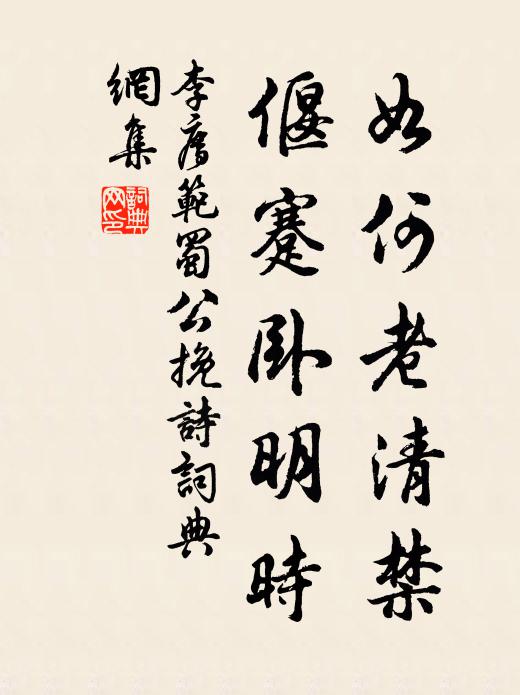 如何老清禁
偃蹇卧明時
李廌範蜀公挽詩詞典
網集
詞典網印